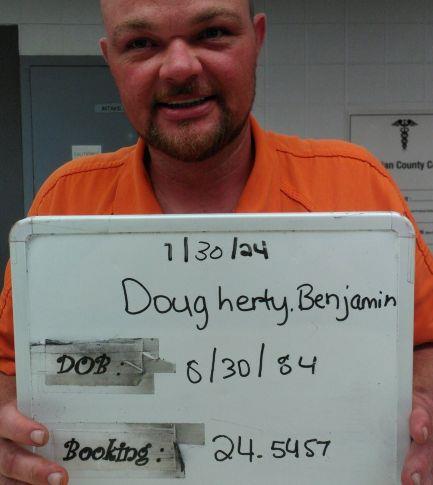 INTAKE
CAUTION
an County C
7/30/24
Dougherty, Benjamin
DOB: 8/30/84
Booking: 24.5457